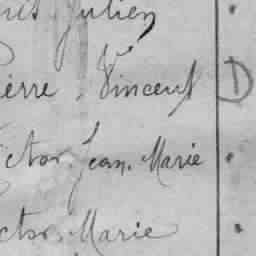 Julien
Pierre, Vincent D
Victor, Jean, Marie
Victor, Marie